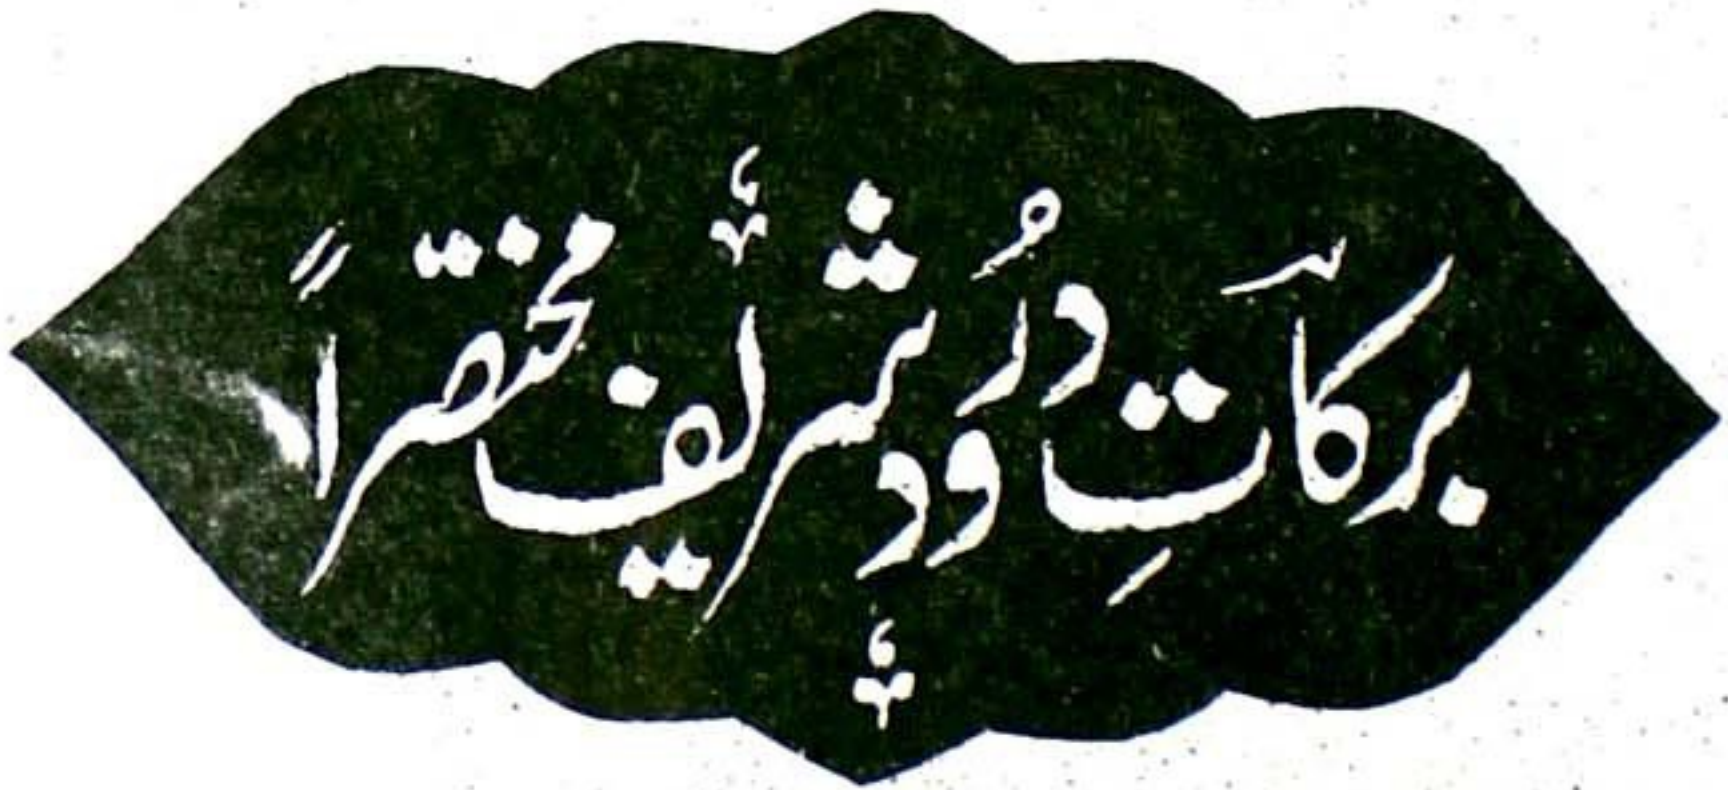 برکاتِ دُرود شریف مختصراً